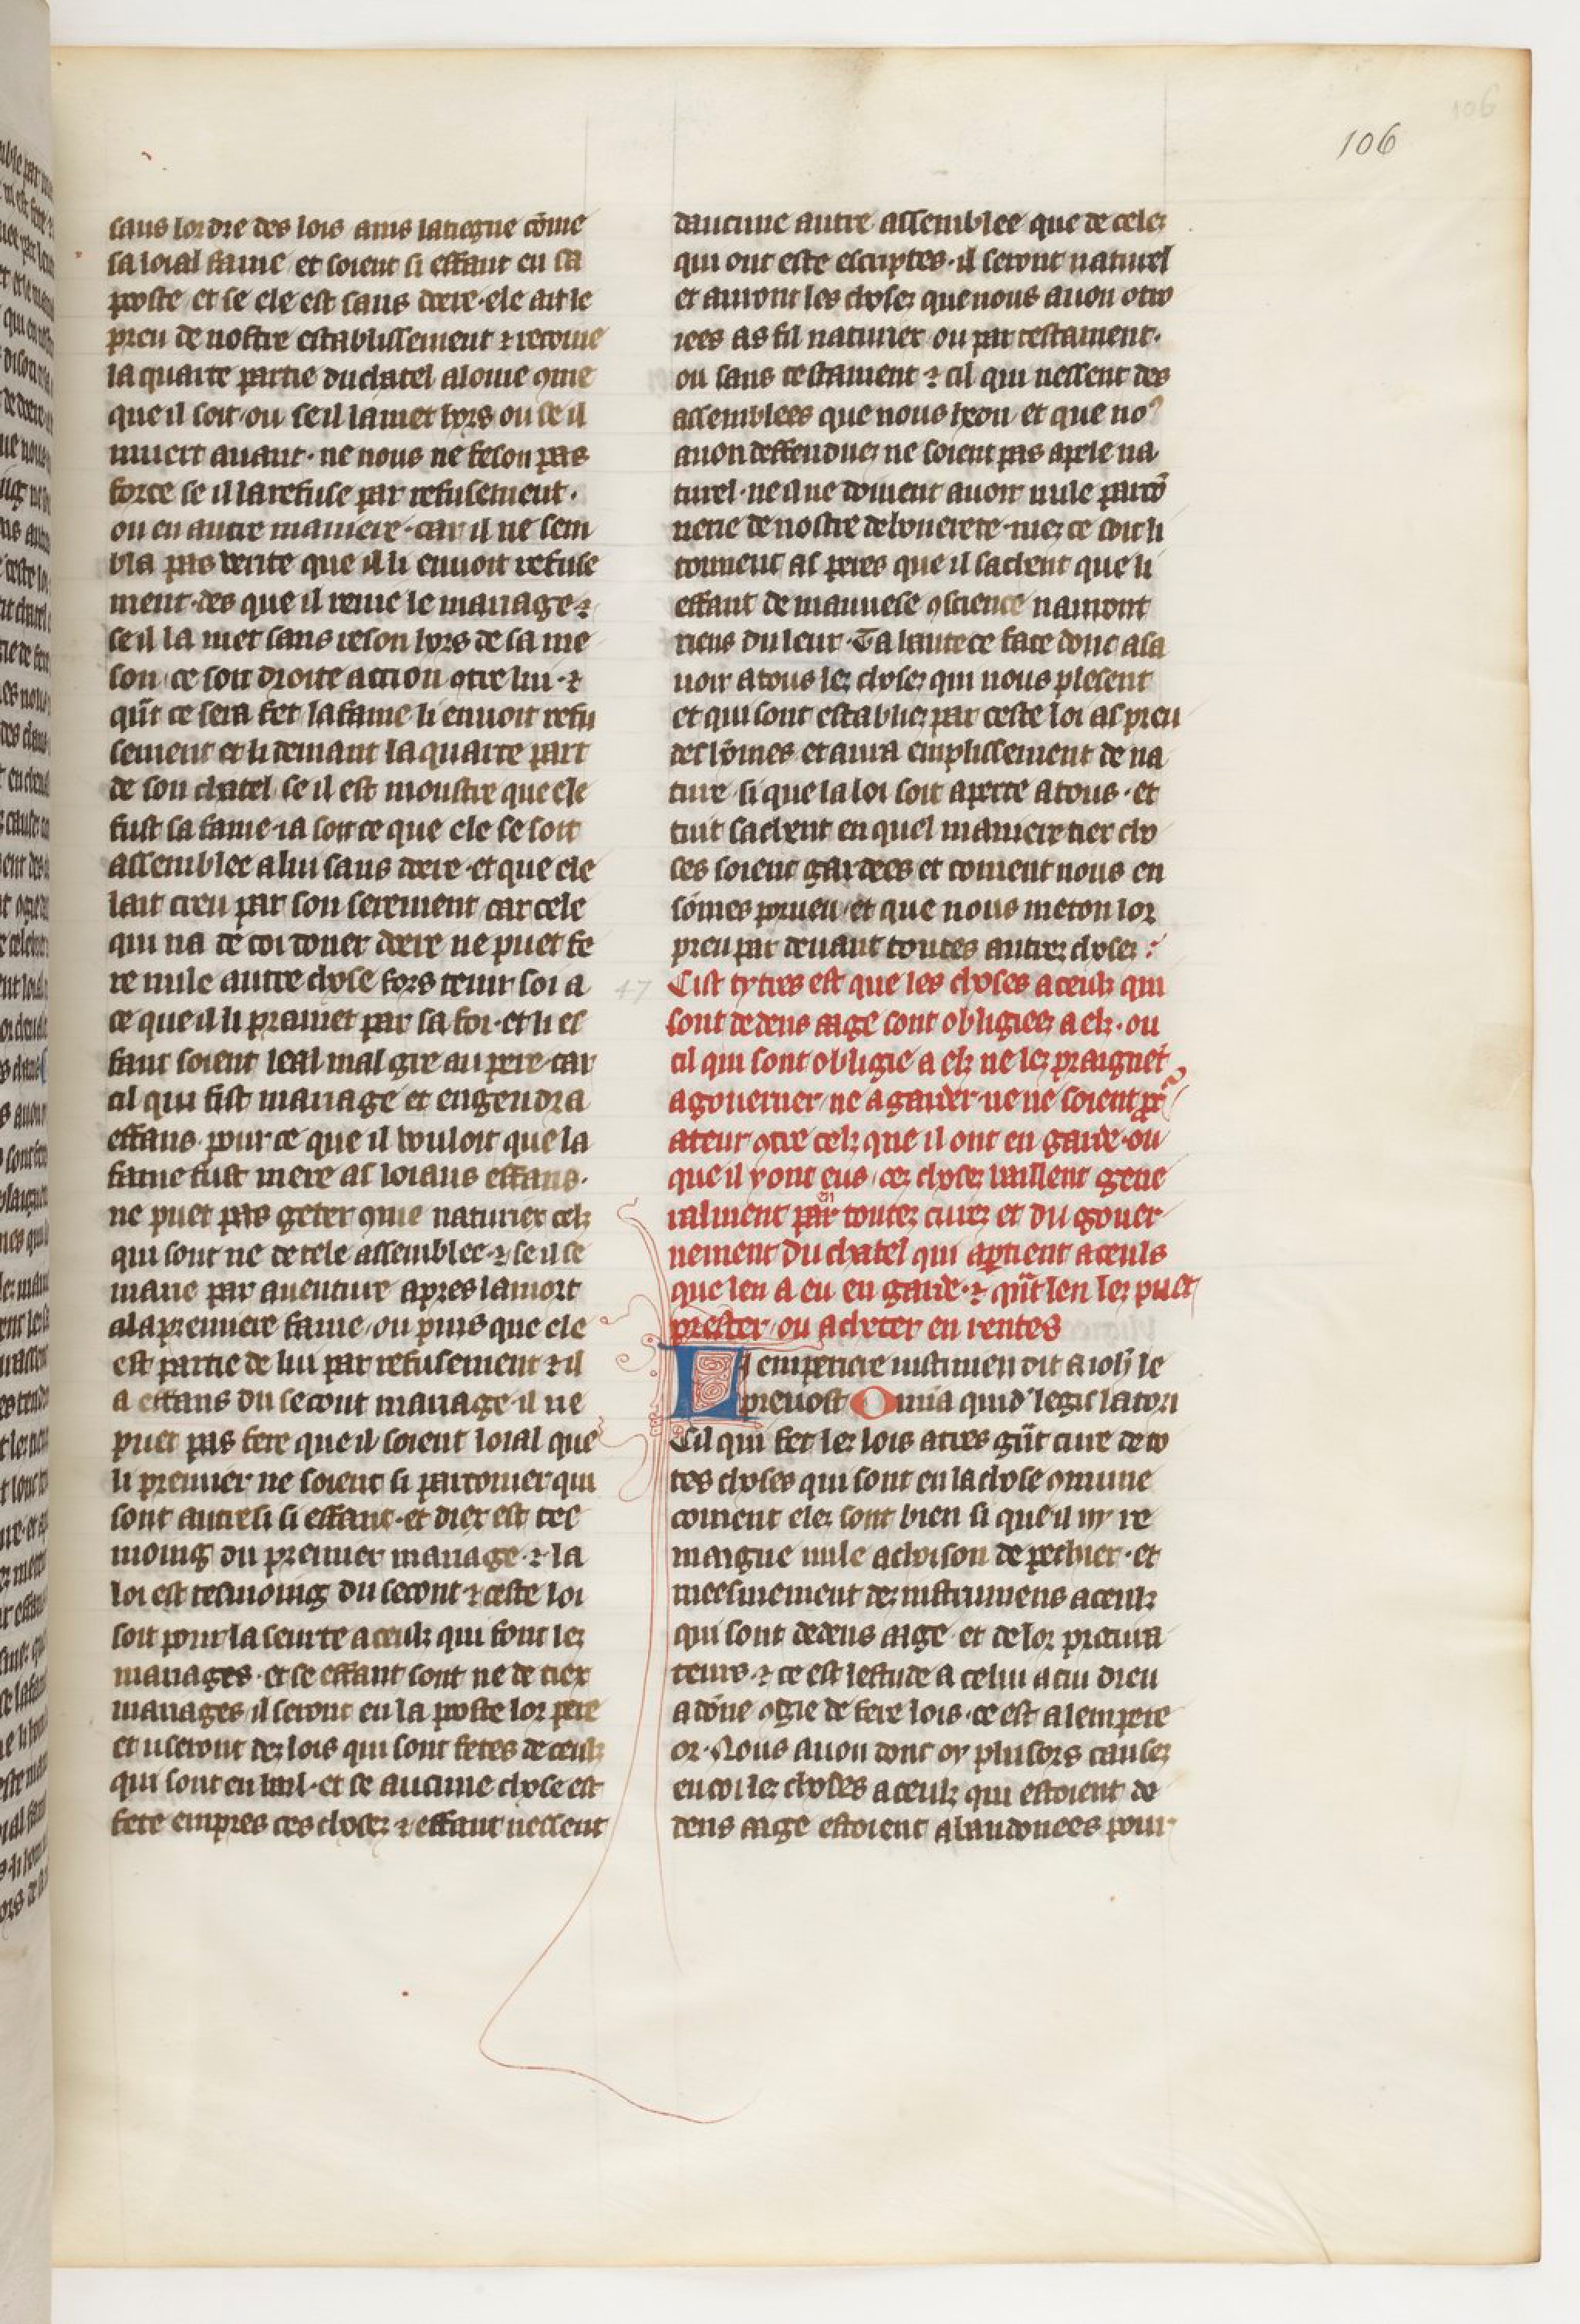 106
sans lordre des lois ains la tiegne cōme
sa loial fame et soient si effant en sa
poste et se ele est sans doere·ele ait le
preu de nostre establissement ⁊ recoiue
la quarte partie du chatel a lome ꝯme
que il soit ou se il la met hors ou se il
muert auant· ne nous ne feson pas
force se il la refuse par refusement·
ou en autre maniere·car il ne sem
bla pas verite que il li enuoit refuse
ment·des que il renie le mariage·⁊
se il la met sans reson hors de sa me
son ce soit droite action ꝯtre lui·⁊
qn̄t ce sera fet la fame li enuoit refu
sement et li demant la quarte part
de son chatel se il est moustre que ele
fust sa fame·ia soit ce que ele se soit
assemblee a lui sans doere·et que ele
lait creu par son serement car cele
qui na de coi doner doere ne puet fe
re nule autre chose fors tenir soi a
ce que il li pramet par sa foi·et li ef
fant soient leal mal gre au pere·car
cil qui fist mariage et engendra
effans pour ce que il vouloit que la
fame fust mere as loiaus effans·
ne puet pas geter ꝯme naturiex celz
qui sont ne de tele assemblee·⁊ se il se
marie par auenture apres la mort
a la premiere fame ou puis que ele
est partie de lui par refusement ⁊ il
a effans du secont mariage il ne
puet pas fere que il soient loial que
li premier ne soient si parconier qui
sont autresi si effant·et diex est tes
moing du premier mariage·⁊ la
loi est tesmoing du secont ⁊ ceste loi
soit pour la seurte a ceulz qui font lez
mariages·et se effant sont ne de tiex
mariages il seront en la poste lor pere
et useront dez lois qui sont fetes de ceulz
qui sont en bail·et se aucune chose est
fete empres ces chosez ⁊ effant nessent
daucune autre assemblee que de celez
qui ont este escriptes·il seront naturel
et auront les chosez que nous auon otro
iees as fil naturiex ou par testament·
ou sans testament ⁊ cil qui nessent des
assemblees que nous heon et que noꝰ
auon deffenduez ne soient pas apele na
turel·ne il ne doiuent auoir nule parcō
nerie de nostre debonerete·mez ce soit li
torment as peres que il sachent que li
effant de mauuese ꝯscience nauront
riens du leur·Ta hautece face donc a sa
uoir a tous lez chosez qui nous plesent
et qui sont establiez par ceste loi as preu
des hōmes et aura emplissement de na
ture si que la loi soit aperte a tous·et
tuit sachent en quel maniere tiex cho
ses soient gardees et coment nous en
sōmes porueu et que nous meton lor
preu par deuant toutes autrez chosez:
47 Cist tytres est que les choses a ceulz qui
sont dedens aage sont obligiees a elz·ou
cil qui sont obligie a elz ne lez praignēt
a gouerner ne a garder·ne ne soient pͬr
ateur ꝯtre celz que il ont en garde·ou
que il y ont eus cez chosez vaillent gene
ralment par toutez curez et du gouer
en
nement du chatel qui apꝛtient a ceuls
que len a eu en garde·⁊ qn̄t len lez puet
prester ou acheter en rentes
Li emperiere iustinien dit a ioh̄ le
preuost Omnia quid' legis latori
Cil qui fet lez lois a tres gn̄t cure de to
tes choses qui sont en la chose ꝯmune
coment elez sont bien si que il ny re
maigne nule achoison de pechier·et
meesmement dez instrumens a ceulz
qui sont dedens aage et de lor procura
teurs·⁊ ce est lestude a celui a cui dieu
a dōne ꝯgie de fere lois·ce est a lempere
or·Nous auon donc oy plusors causez
en coi lez choses a ceulz qui estoient de
dens aage estoient abandonees pour